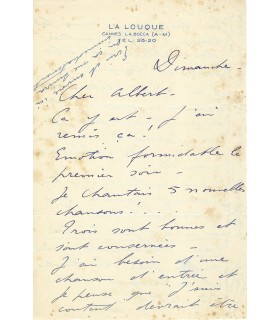 LA LOUQUE
CANNES LA BOCCA (A-M)
TEL. 25-20
Dimanche -
Cher Albert -
Ca y est - j'ai
remis ça !
Emotion formidable le
premier soir -
Je chantais 5 nouvelles
chansons....
Trois sont bonnes et
sont conservées -
J'ai besoin d'une
chanson d'entrée et
je pense que "J'suis
content" devrait être